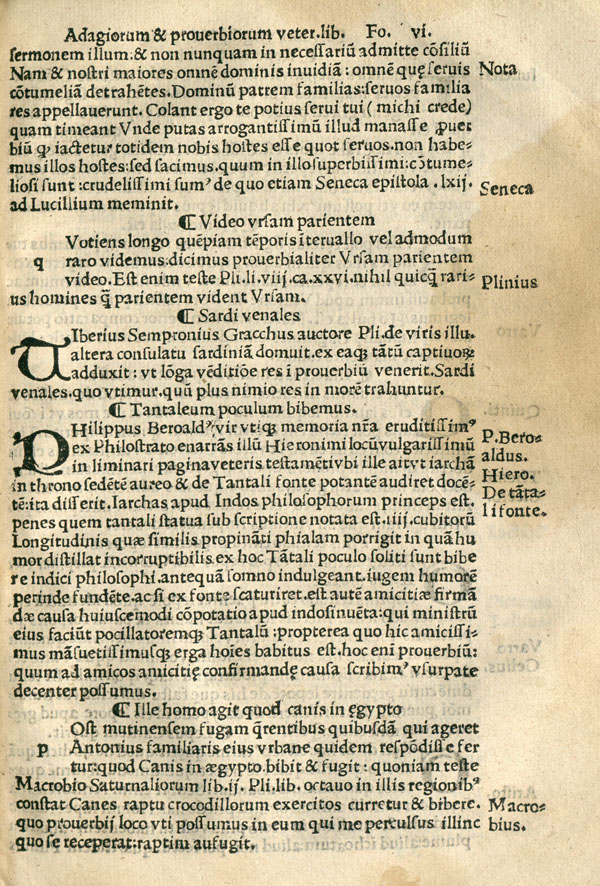 Adagiorum & prouerbiorum veter.lib. Fo. vi.
sermonem illum:& non nunquam in necessariū admitte cōsiliū
Nam & nostri maiores omnē dominis inuidiā : omnē quę seruis
Nota
cōtumeliā detrahētes.Dominū patrem familias:seruos familia
res appellauerunt. Colant ergo te potius serui tui ( michi crede)
quam timeant Vnde putas arrogantissimū illud manasse ꝓuer
biū qꝫ iactetur totidem nobis hostes esse quot seruos.non habe⸗
mus illos hostes:sed facimus.quum in illo superbissimi:cōtume⸗
liosi sunt :crudelissimi sumꝰ de quo etiam Seneca epistola .lxij.
Seneca
ad Lucillium meminit.
¶ Video vrsam parientem
Votiens longo quēpiam tēporis īteruallo vel admodum
q raro videmus:dicimus prouerbialiter Vrsam parientem
video.Est enim teste Pli.li.viij.ca.xxvi.nihil quicq̄ rari⸗
Plinius
us homines q̄ parientem vident Vrsam.
¶ Sardi venales
TIberius Sempronius Gracchus auctore Pli.de viris illu.
altera consulatu sardiniā domuit.ex eaqꝫ tātū captiuoꝝ
adduxit : vt lōga vēditiōe res ī prouerbiū venerit.Sardi
venales.quo vtimur.quū plus nimio res in morē trahuntur.
¶ Tantaleum poculum bibemus.
PHilippus Beroaldꝰ,vir vtiqꝫ memoria nr̄a eruditissimꝰ
P.Bero⸗
ex Philostrato enarrās illū Hieronimi locū vulgarissimū
aldus.
in liminari pagina veteris testamētivbi ille aitvt iarchā
Hiero.
in throno sedētē aureo & de Tantali fonte potantē audiret docē⸗
De tāta⸗
tē:ita disserit.Iarchas apud Indos philosophorum princeps est.
li fonte.
penes quem tantali statua sub scriptione notata est.iiij.cubitorū
Longitudinis quæ similis propināti phialam porrigit in quā hu
mor distillat incorruptibilis ex hoc Tātali poculo soliti sunt bibe
re indici philosophi.antequā somno indulgeant.iugem humorē
perinde fundēte.ac si ex fonte scaturiret.est autē amicitiæ firmā
dæ causa huiuscemodi cōpotatio apud indos inuēta:qui ministrū
eius faciūt pocillatoremqꝫ Tantalū :propterea quo hic amicissi⸗
mus māsuetissimusqꝫ erga hoīes habitus est.hoc eni prouerbiū:
quum ad amicos amicitię confirmandę causa scribimꝰ vsurpate
decenter possumus.
¶ Ille homo agit quod canis in ęgypto
Ost mutinensem fugam q̄rentibus quibusdā qui ageret
p Antonius familiaris eius vrbane quidem respōdisse fer
tur:quod Canis in ægypto.bibit & fugit : quoniam teste
Macrobio Saturnaliorum lib.ij. Pli.lib. octauo in illis regionibꝰ
constat Canes raptu crocodillorum exercitos curretur & bibere.
Macro⸗
quo prouerbij loco vti possumus in eum qui me perculsus illinc
bius.
quo se receperat:raptim aufugit.